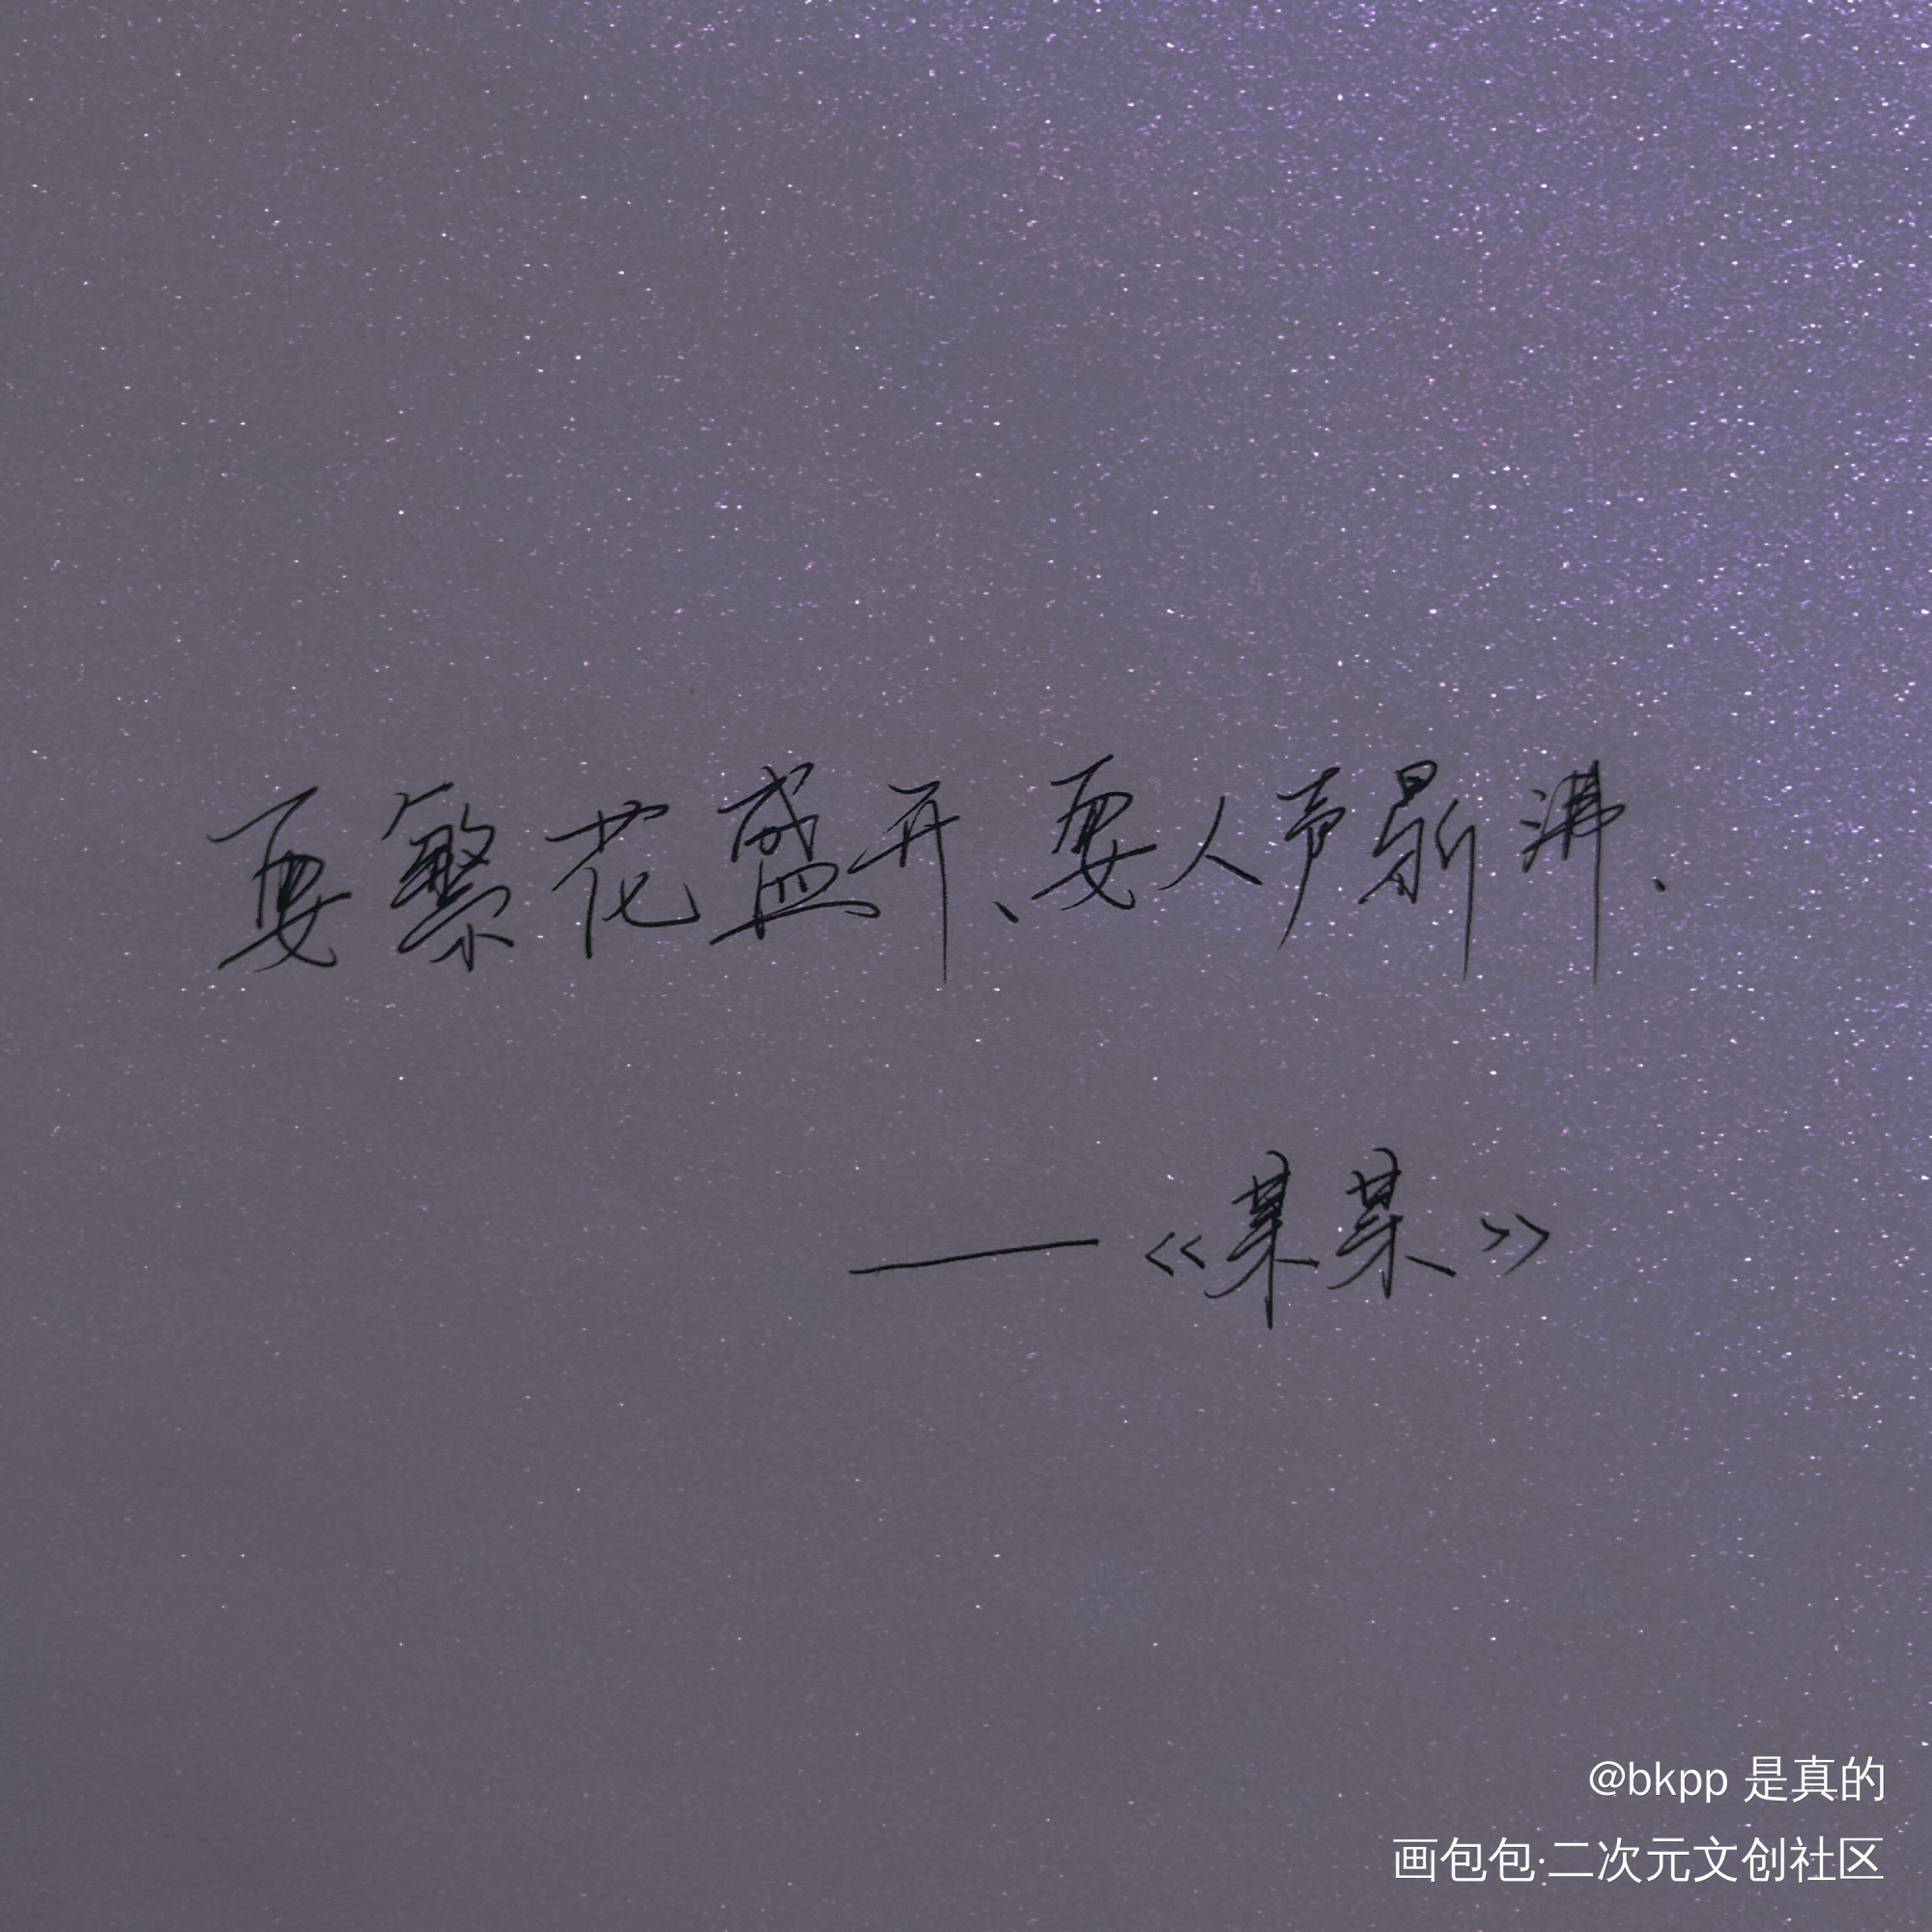 要繁花盛开、要人声鼎沸.
——《某某》
@bkpp 是真的
画包包·二次元文创社区